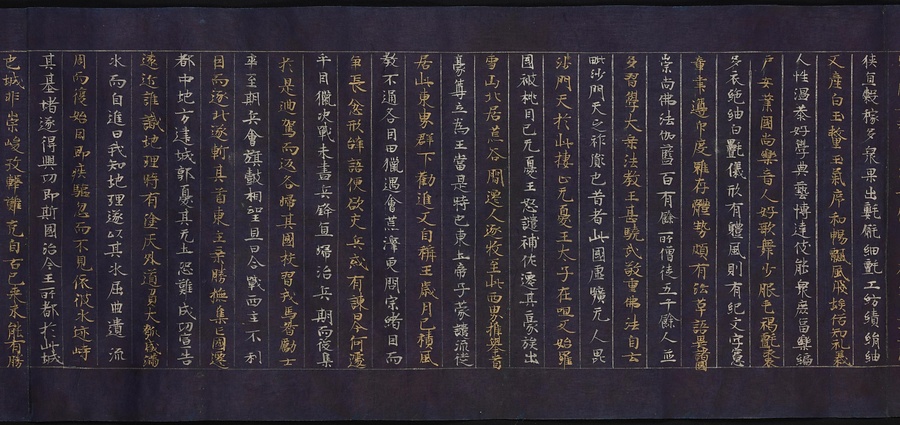 狹宜穀稼多衆果出氍毹細氈工紡績絁紬
又産白玉黳玉氣序和暢飄風飛埃俗知礼義
人性温恭好學典藝博達伎能衆庶富樂編
戶安業國尚樂音人好歌舞少服毛褐氈裘
多衣絁紬白㲲儀形有禮風則有紀文字憲
章聿遵印度雖存體勢頗有沿革語異諸國
崇尚佛法伽藍百有餘所僧徒五千餘人並
多習學大乘法教王甚驍武敬重佛法自云
毗沙門天之祚胤也昔者此國虛曠无人毗
沙門天於此棲止无憂王太子在呾叉始羅
國被抉目已无憂王怒譴補佐遷其豪族出
雪山北居荒谷間遷人逐牧至此西界推舉酋
豪尊立爲王當是時也東土帝子蒙譴流徙
居此東界群下勸進又自稱王歲月已積風
教不通各因田獵遇會荒澤更問宗緒因而
爭長忿形辭語便欲交兵或有諫曰今何遽
乎因獵決戰未盡兵鋒宜歸治兵期而後集
於是迴駕而返各歸其國挍習戎馬督勵士
卒至期兵會旗鼓相望旦日合戰西主不利
因而逐北遂斬其首東主乘勝撫集亡國遷
都中地方建城郭憂其无土恐難成功宣告
遠近誰識地理時有塗灰外道負大瓠盛滿
水而自進曰我知地理遂以其水屈曲遺流
周而復始因即疾驅忽而不見依彼水迹峙
其基堵遂得興功即斯國治今王所都於此城
也城非崇峻攻擊難克自古已來未能有勝